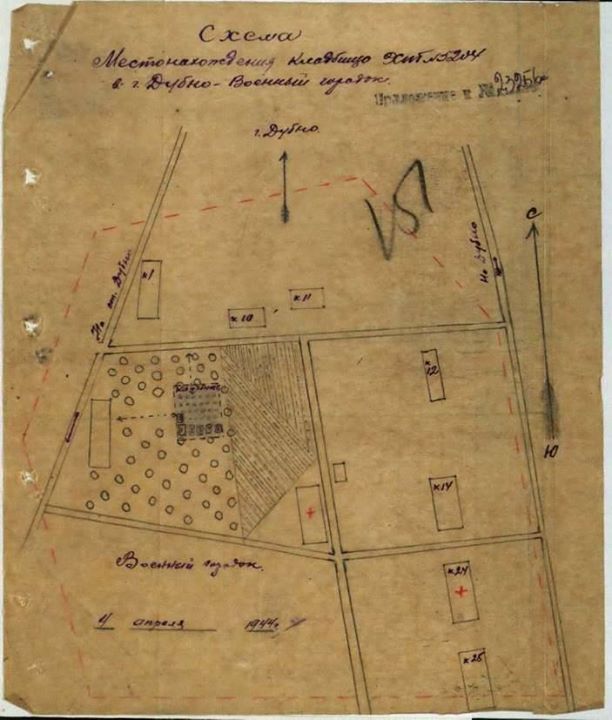 Схема
Местонахождения кладбища ХППГ №5204
в г. Дубно-Военный городок.
Приложение к № 2325/с
г. Дубно.
С
На ст. Дубно
На Дубно
к 1
к 10
к 11
к 12
Кладбище
Ю
к 14
Военный городок.
к 24
4 апреля 1944 г.
к 25